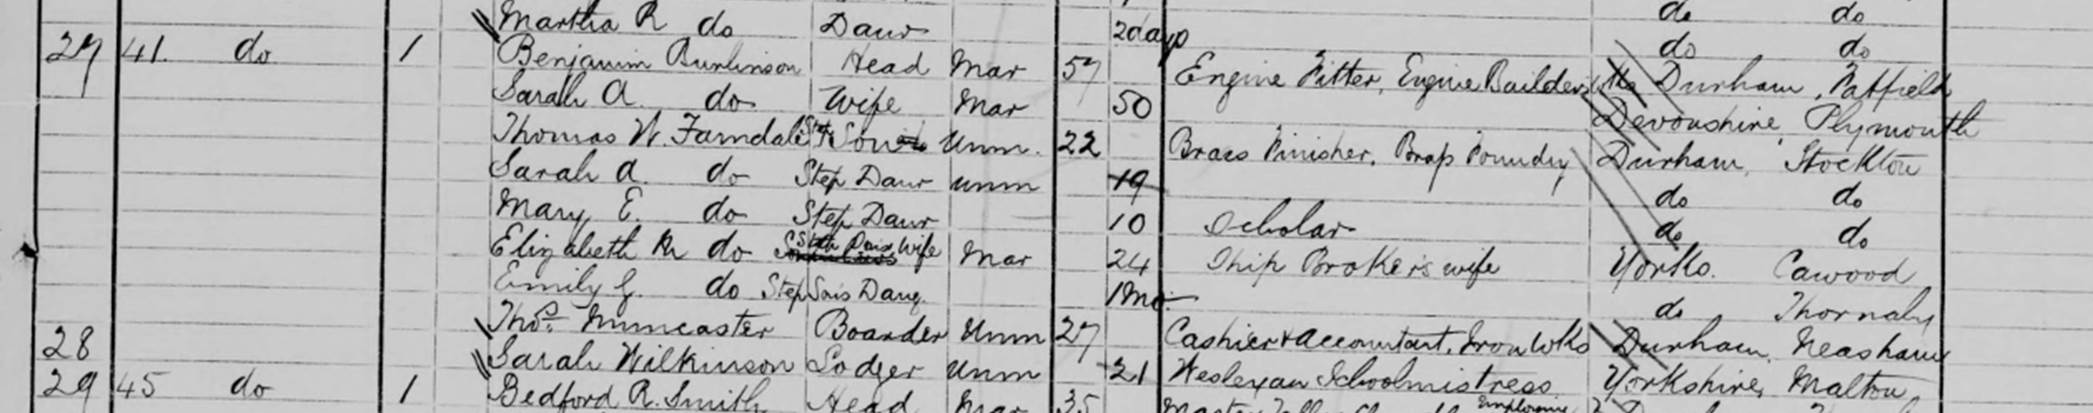 Martha R do Daur 2days do do
27 41. do 1 Benjamin Burlinson Head Mar 57 Engine Fitter, Engine Builders Wks Durham, Fatfield
Sarah A. do Wife Mar 50 Devonshire, Plymouth
Thomas W. Farndale Step Son Unm. 22 Brass Finisher, Brass Foundry Durham, Stockton
Sarah A. do Step Daur Unm 19 do do
Mary E. do Step Daur 10 Scholar do do
Elizabeth M do Wife Mar 24 Ship Broker's wife Yorks. Cawood
Emily G. do Step Sons Daug. 1mo. do Thornaby
28 Thos. Muncaster Boarder Unm 27 Cashier & accountant, Iron Wks Durham, Neasham
Sarah Wilkinson Lodger Unm 21 Wesleyan Schoolmistress Yorkshire, Malton
29 45 do 1 Bedford R. Smith Head Mar 35 Master Employing